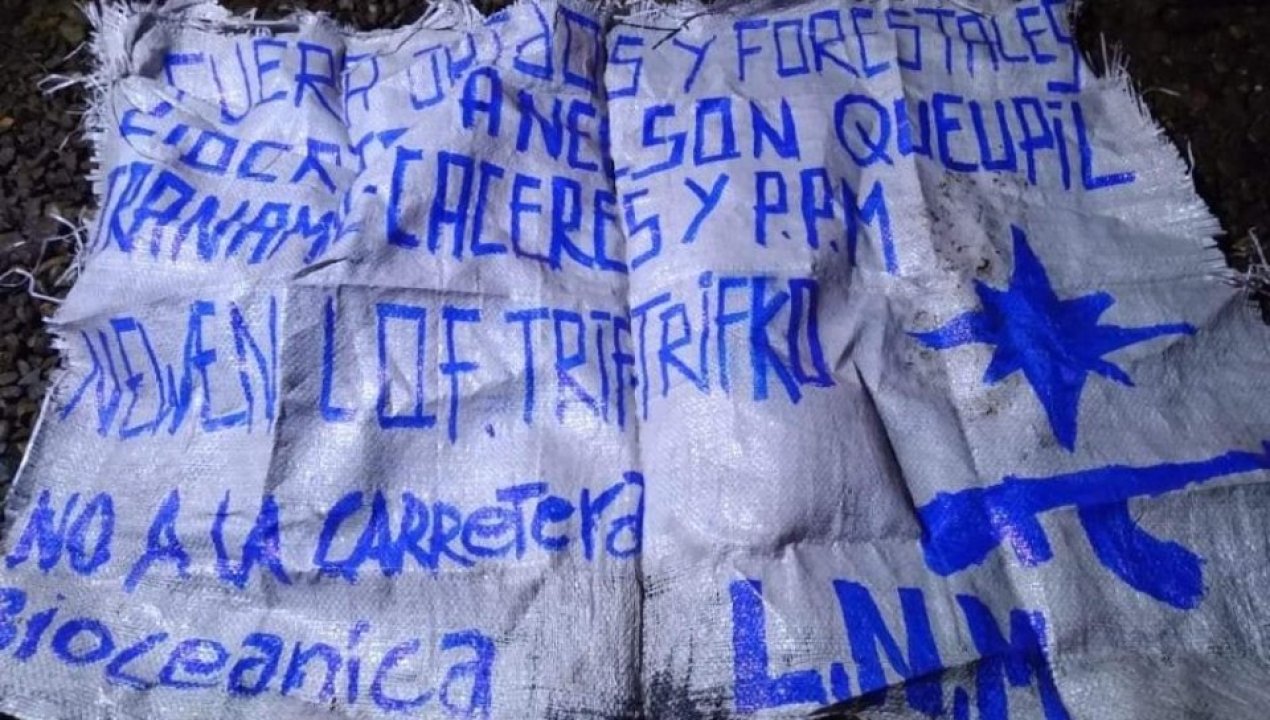 FUERA Y FORESTALES
A SON QUEUPIL
CACERES Y P.P.M
NEWEN LOF. TRIFTRIFKO
NO A LA CARReTeRa
Bioceanica
L.N.M